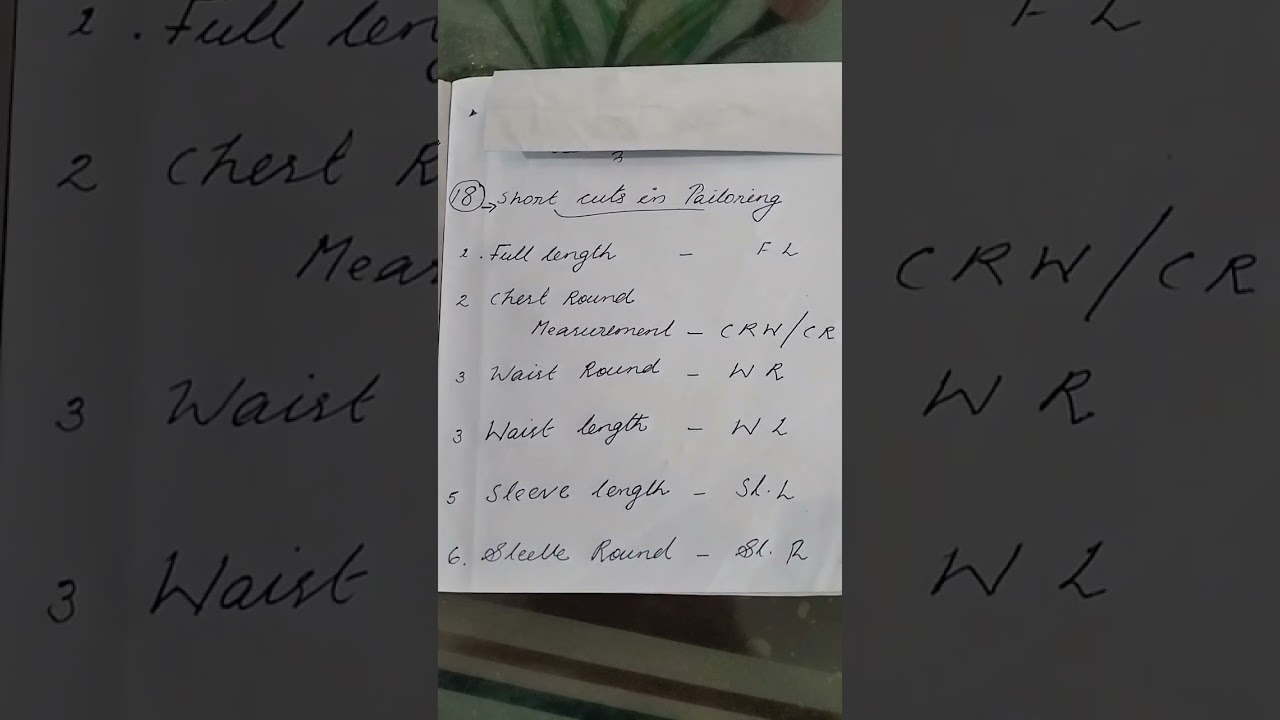 18 → Short cuts in Tailoring
1. Full length - F L
2 Chest Round
Measurement - CRW/CR
3 Waist Round - W R
3 Waist length - W L
5 Sleeve length - Sl. L
6. Sleeve Round - Sl. R